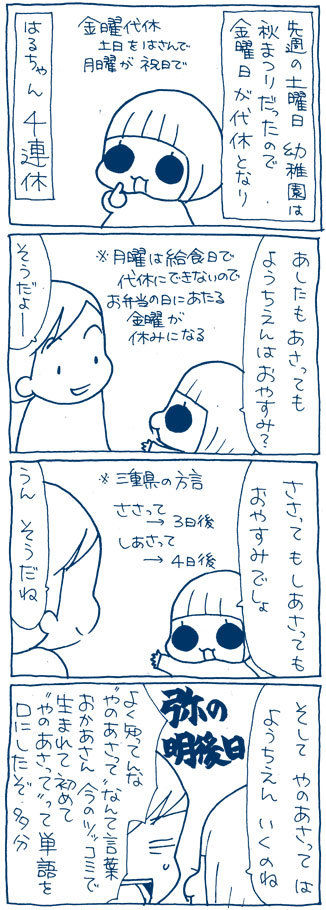 先週の土曜日 幼稚園は
秋まつりだったので
金曜日が代休となり
金曜代休
土日をはさんで
月曜が祝日で
はるちゃん 4連休
あしたもあさっても
ようちえんはおやすみ?
※月曜は給食日で
代休にできないので
お弁当の日にあたる
金曜が
休みになる
そうだよー
ささってもしあさっても
おやすみでしょ
※三重県の方言
ささって
→3日後
しあさって
→4日後
うん そうだね
そして やのあさっては
ようちえん いくのね
弥の
明後日
よく知ってんな
"やのあさって"なんて言葉
おかあさん 今のツッコミで
生まれて初めて
"やのあさって"って単語を
口にしたぞ 多分